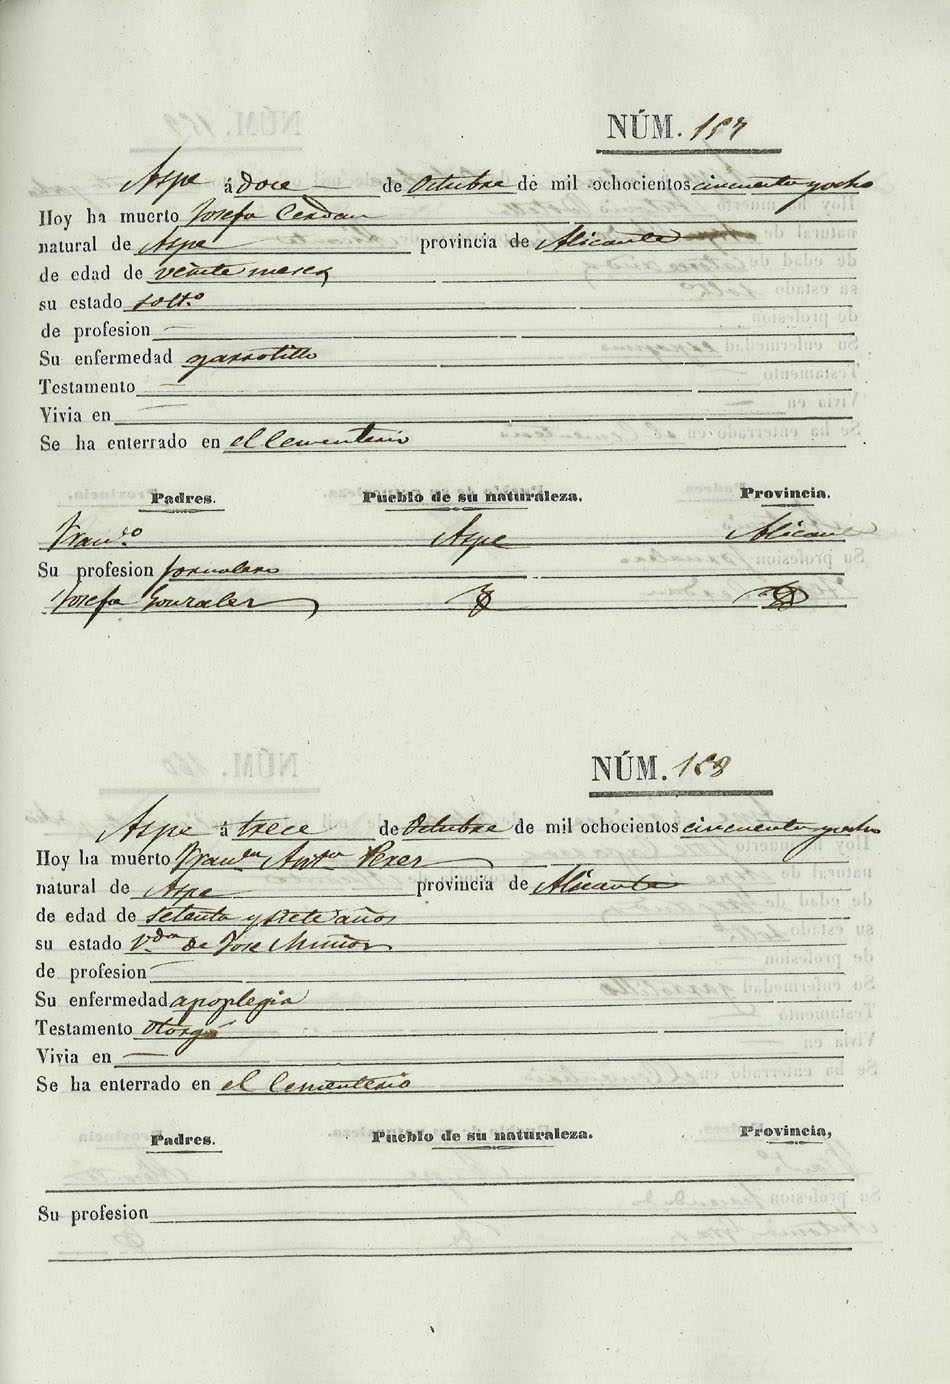 NÚM. 157
Aspe á doce de Octubre de mil ochocientos cincuenta y ocho
Hoy ha muerto Josefa Cerdan
natural de Aspe provincia de Alicante
de edad de veinte meses
su estado solt.ᵒ
de profesion —
Su enfermedad garrotillo
Testamento —
Vivia en —
Se ha enterrado en el Cementerio
Padres. Pueblo de su naturaleza. Provincia.
Fran.ᶜᵒ Aspe Alicante
Su profesion jornalero
Josefa Gonzalez
NÚM. 158
Aspe á trece de Octubre de mil ochocientos cincuenta y ocho
Hoy ha muerto Ant.ᵃ Perez
natural de Aspe provincia de Alicante
de edad de setenta y siete años
su estado V.ᵈᵃ de Jose Muñoz
de profesion —
Su enfermedad apoplegia
Testamento otorgó
Vivia en —
Se ha enterrado en el Cementerio
Padres. Pueblo de su naturaleza. Provincia,
Su profesion